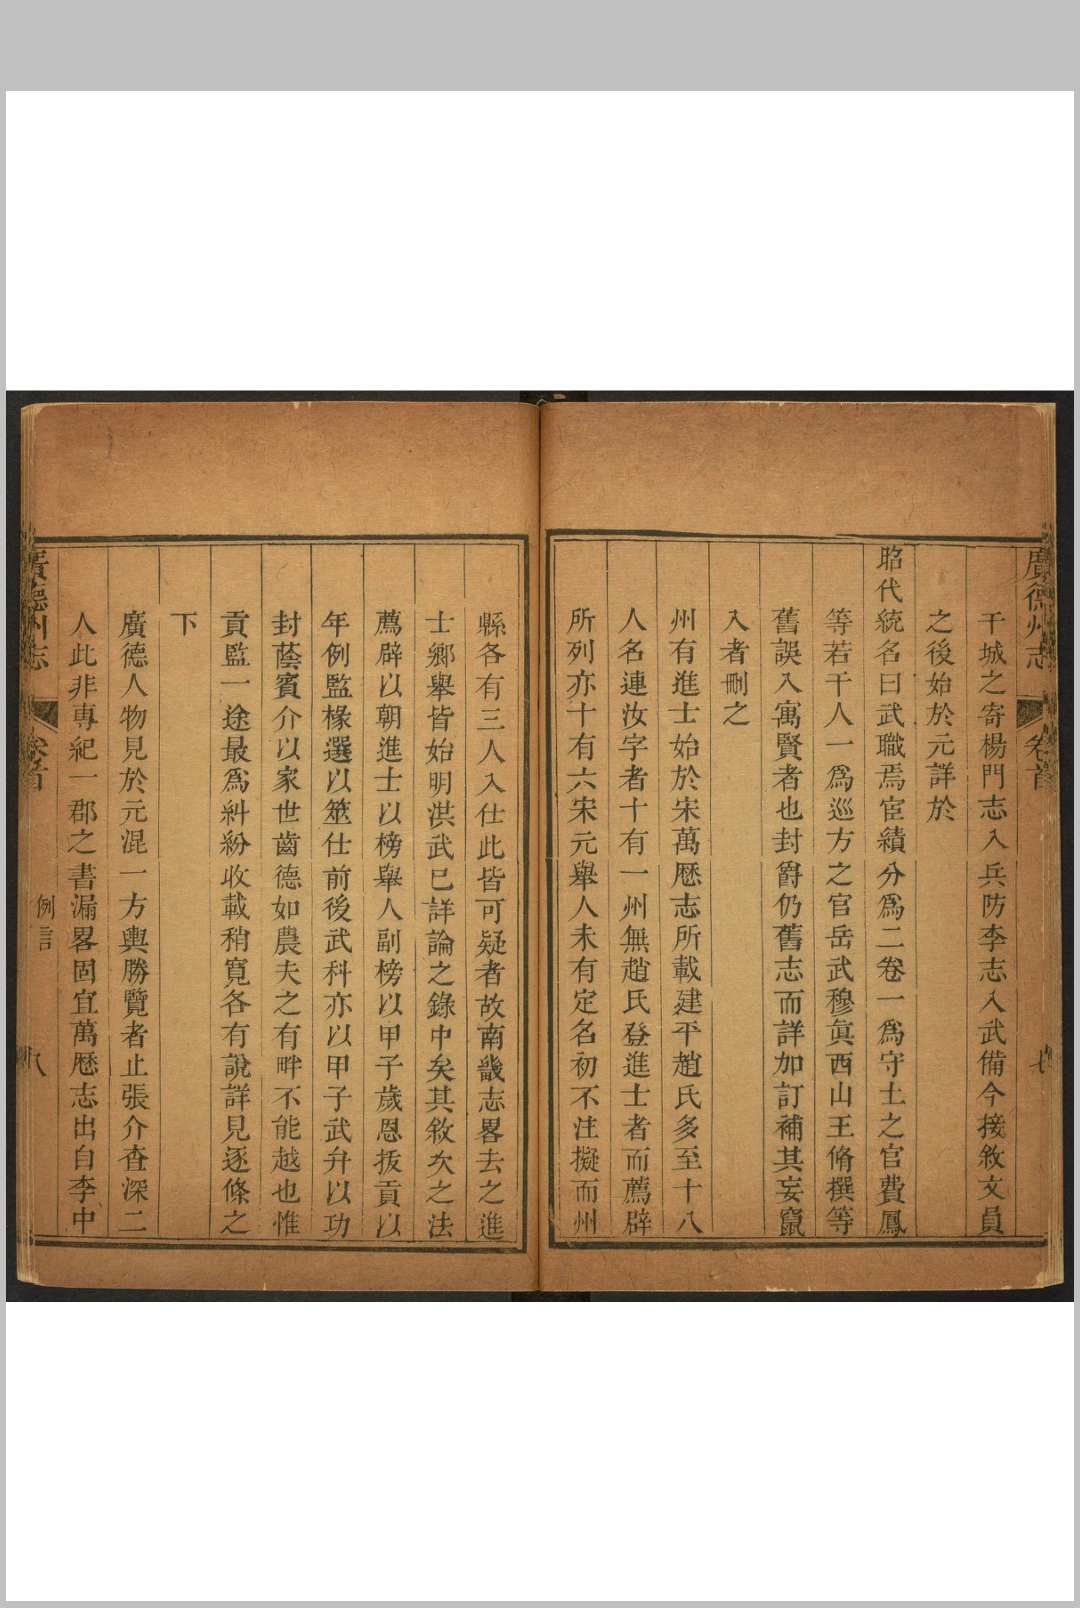 廣德州志
卷首
七
干城之寄楊門志入兵防李志入武備今接敘文員
之後始於元詳於
昭代統名曰武職焉宦績分爲二卷一爲守土之官費鳳
等若干人一爲巡方之官岳武穆眞西山王脩撰等
舊誤入寓賢者也封爵仍舊志而詳加訂補其妄竄
入者刪之
州有進士始於宋萬歷志所載建平趙氏多至十八
人名連汝字者十有一州無趙氏登進士者而薦辟
所列亦十有六宋元舉人未有定名初不注擬而州
縣各有三人入仕此皆可疑者故南畿志畧去之進
士鄉舉皆始明洪武已詳論之錄中矣其敘次之法
薦辟以朝進士以榜舉人副榜以甲子歲恩拔貢以
年例監椽選以筮仕前後武科亦以甲子武弁以功
封蔭賓介以家世齒德如農夫之有畔不能越也惟
貢監一途最爲糾紛收載稍寬各有說詳見逐條之
下
廣德人物見於元混一方輿勝覽者止張介查深二
人此非專紀一郡之書漏畧固宜萬歷志出自李中
廣德州志
卷首
例言
八